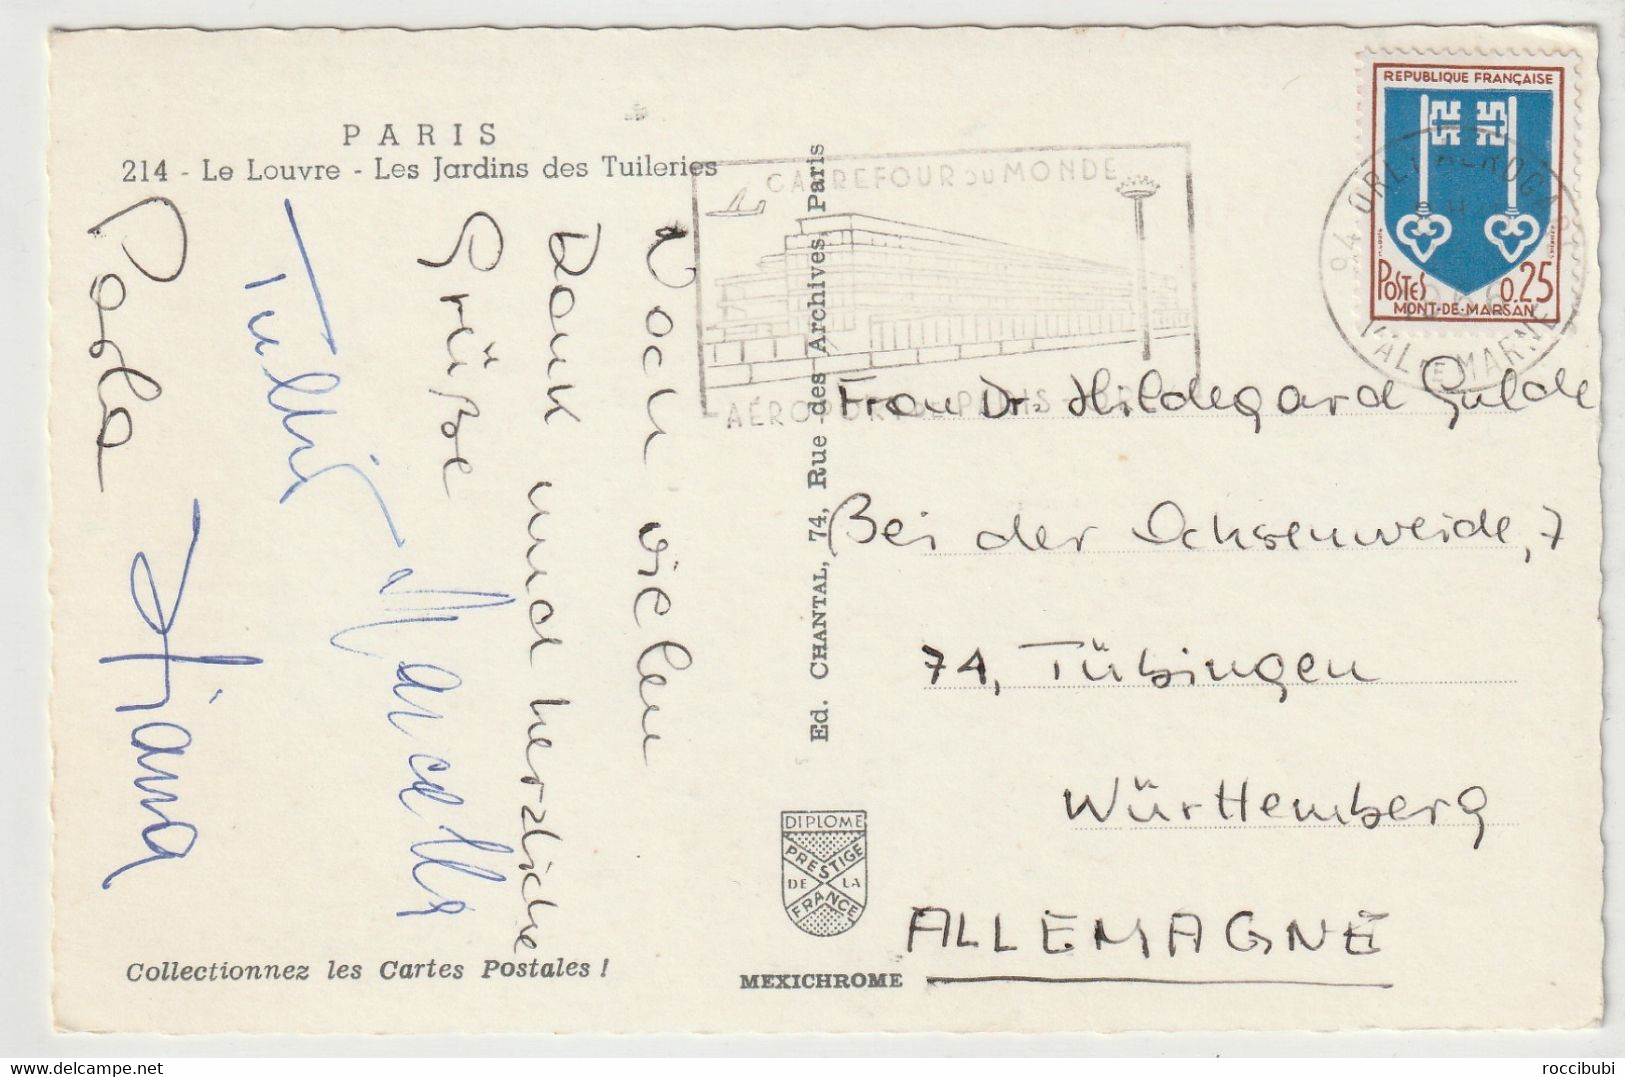 PARIS
214 - Le Louvre - Les Jardins des Tuileries
Noch vielen
Dank und herzliche
Grüße
Tullio
Marcella
Paola
Diana
Collectionnez les Cartes Postales !
Ed. CHANTAL, 74, Rue des Archives, Paris
DIPLOME
PRESTIGE
DE LA
FRANCE
MEXICHROME
CARREFOUR DU MONDE
AÉROPORT DE PARIS
REPUBLIQUE FRANÇAISE
POSTES 0.25
MONT-DE-MARSAN
94 ORLY AEROGA
VAL DE MARNE
Frau Dr. Hildegard Gulde
Bei der Ochsenweide, 7
74, Tübingen
Württemberg
ALLEMAGNE
roccibubi